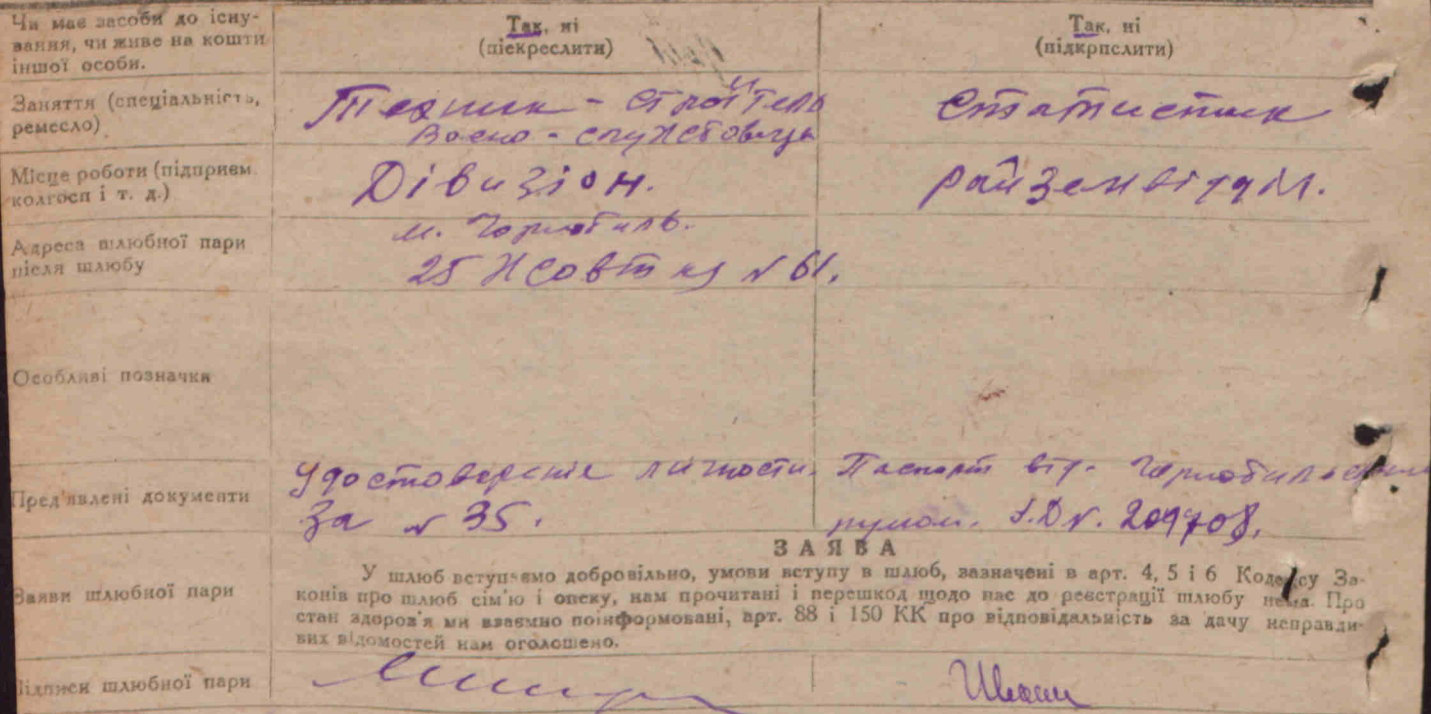 Чи має засоби до існу-
вання, чи живе на кошти
іншої особи.
Так, ні
(піекреслити)
Так, ні
(підкрпслити)
Заняття (спеціальність,
ремесло)
Техник - строїтель
Воєно - служстовець
Статистик
Місце роботи (підприєм.
колгосп і т. д.)
Дівизіон.
Райземвідділ.
Адреса шлюбної пари
після шлюбу
м. Чорнобиль.
25 Жовтня № 61.
Особливі позначки
Пред'явлені документи
Удостоверение личности
За № 35.
Паспорт вид. Чорнобильським
№ 209708.
ЗАЯВА
Заяви шлюбної пари
У шлюб вступаємо добровільно, умови вступу в шлюб, зазначені в арт. 4, 5 і 6 Кодексу За-
конів про шлюб сім'ю і опеку, нам прочитані і перешкод щодо нас до реєстрації шлюбу нема. Про
стан здоров'я ми взаємно поінформовані, арт. 88 і 150 КК про відповідальність за дачу неправди-
вих відомостей нам оголошено.
Підписи шлюбної пари